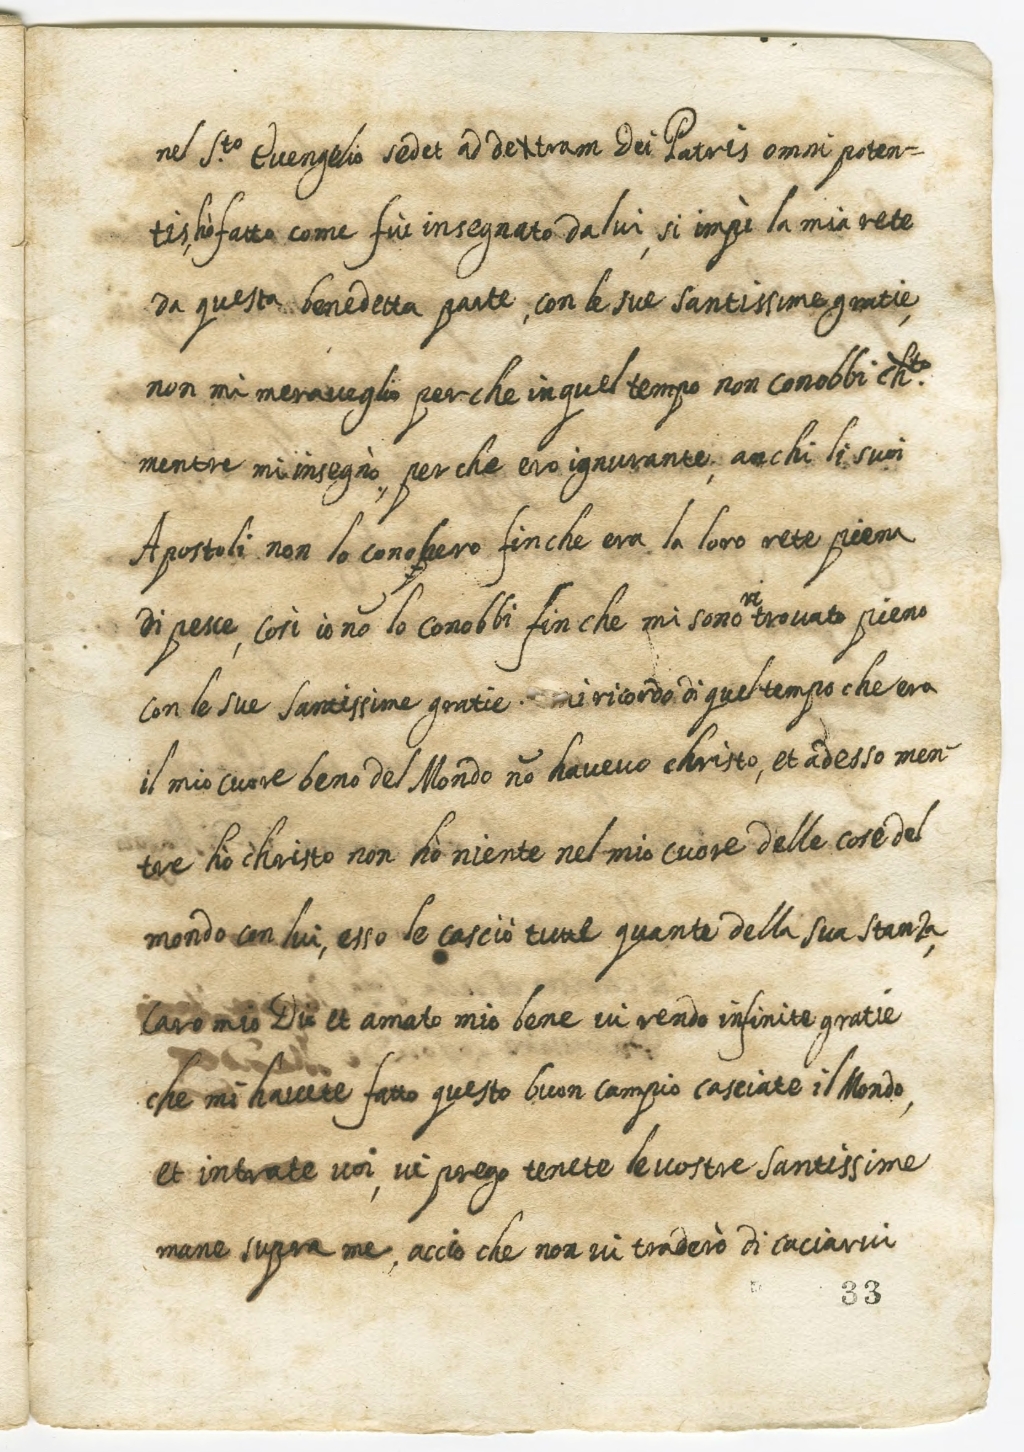 nel S.to Euengelio sedet ad dextram Dei Patris omni poten=
tis, hò fatto come fui insegnato da lui, si impì la mia rete
da questa benedetta parte, con le sue santissime gratie,
non mi merauiglio perche in quel tempo non conobbi ch.to
mentre mi insegnò, perche ero ignurante, anchi li suoi
Apostoli non lo conobero finche era la loro rete piena
di pesce, così io nõ lo conobbi finche mi sono ri trouato pieno
con le sue santissime gratie. mi ricordo di quel tempo che era
il mio cuore beno del Mondo nõ haueuo christo, et adesso men-
tre hò christo non hò niente nel mio cuore delle cose del
mondo con lui, esso le casciò tutte quante della sua stanza,
Caro mio Dio et amato mio bene ui rendo infinite gratie
che mi hauete fatto questo buon campio casciate il Mondo,
et intrate uoi, ui prego tenete le uostre santissime
mane supra me, acciò che non ui traderò di caciarui
33